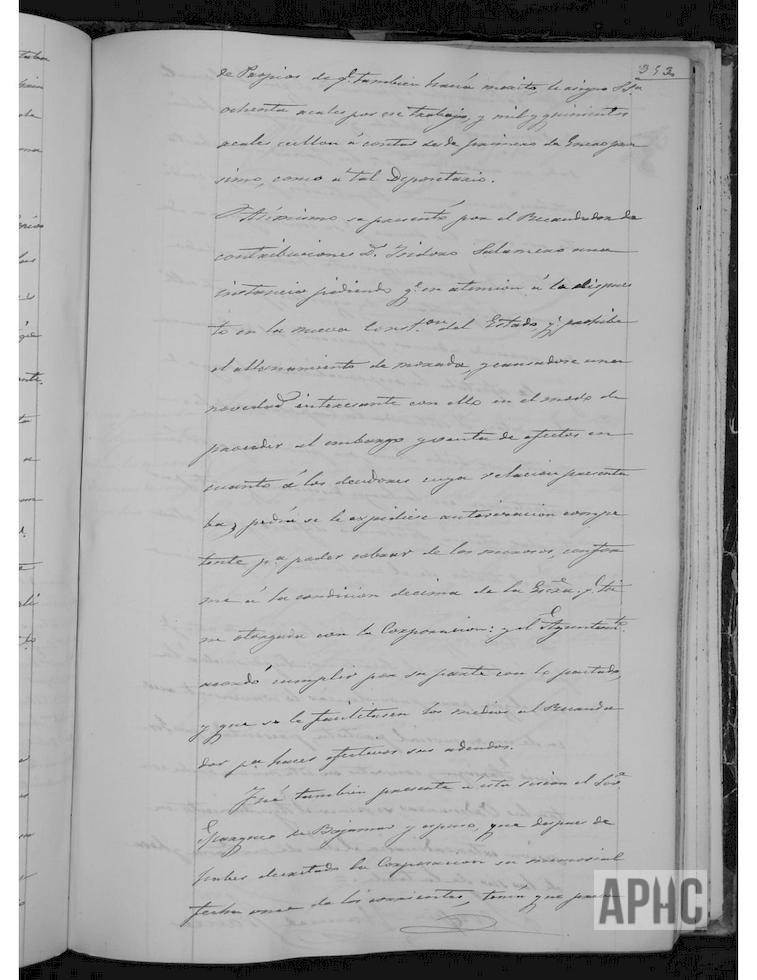 353
de Propios de q.e tambien hacia merito, le asigno S.Sa.
ochenta reales por ese trabajo, y mil y quinientos
reales vellon á contar desde primero de Enero pro
simo, como á tal Depositario.
Asimismo se presentó por el Recaudador de
contribuciones D. Isidoro Salamero una
instancia pidiendo q.e en atencion á lo dispues
to en la nueva Const.on del Estado, q.e prohibe
el allanamiento de morada, y causandose una
novedad interesante con ello en el modo de
proceder al embargo y venta de efectos en
cuanto á los deudores cuya relacion presenta
ba, pedia se le expidiese autorizacion compe
tente p.a poder cobrar de los morosos, confor
me á la condicion decima de la Escra. q.e tie
ne otorgada con la Corporacion: y el E. Ayuntam.to
acordó cumplir por su parte con lo pactado,
y que se le facilitasen los medios al Recauda
dor p.a hacer efectivos sus adeudos.
Fué tambien presente á esta sesion el Sor.
Marques de Bajamar y espuso, que despues de
haber decretado la Corporacion su memorial
fecha once de los corrientes, tenia que para
APHC